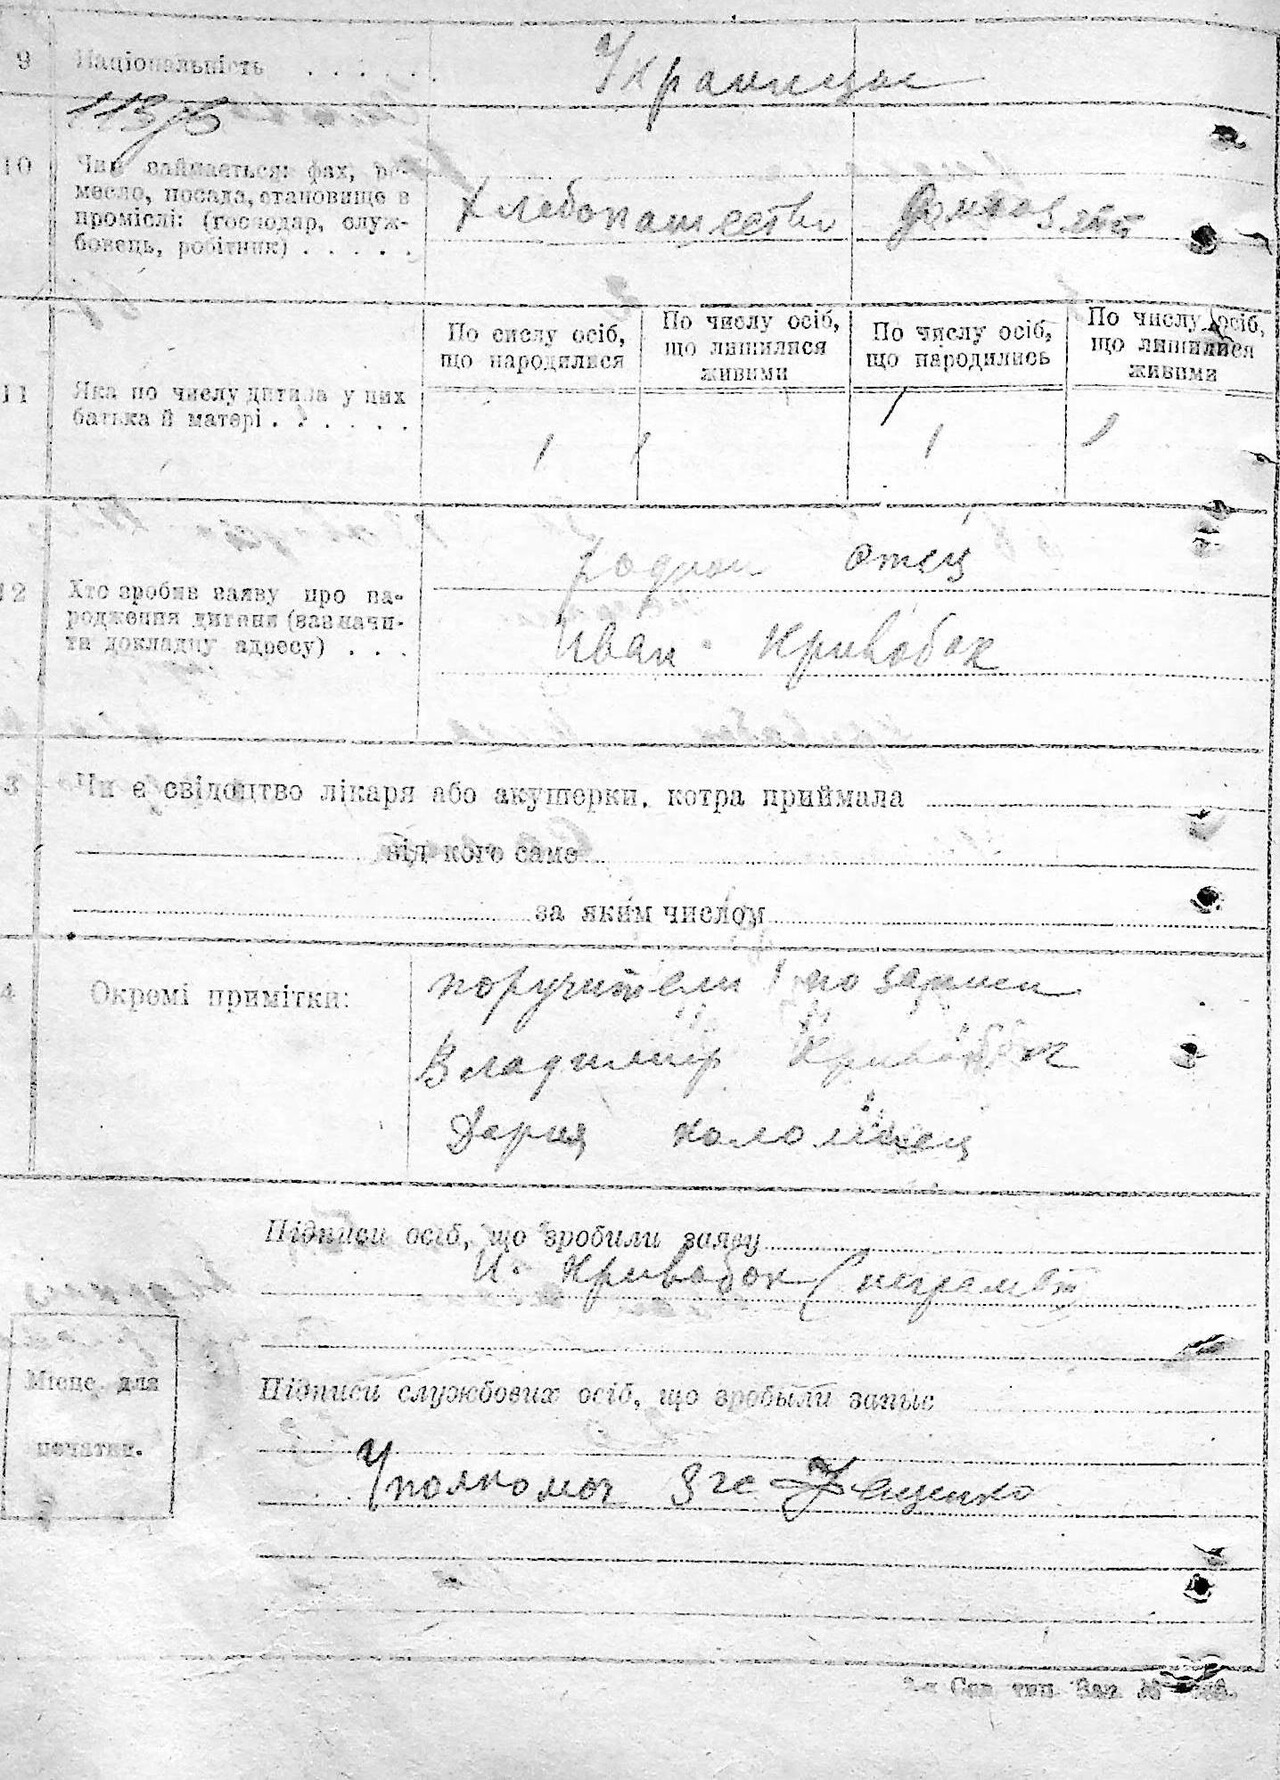 9 Національність . . . . . Украинцы
113/б
10 Чим займається: фах, ре-
месло, посада, становище в
промислі: (господар, служ-
бовець, робітник) . . . . .
Хлебопашество
По числу осіб, що народилися
По числу осіб, що лишилися живими
По числу осіб, що народились
По числу осіб, що лишилися живими
11 Яка по числу дитина у них
батька й матері . . . . . .
1 1 1 1
12 Хто зробив заяву про на-
родження дитини (зазначи-
ти докладну адресу) . . .
родной отец
Иван Кривобок
3 Чи є свідоцтво лікаря або акушерки, котра приймала
від кого саме
за яким числом
4 Окремі примітки:
поручители по записи
Владимир Кривобок
Дария Коломиец
Підписи осіб, що зробили заяву
И. Кривобок (неграмот
Місце для
печатки.
Підписи службових осіб, що зробыли запис
Уполномоч